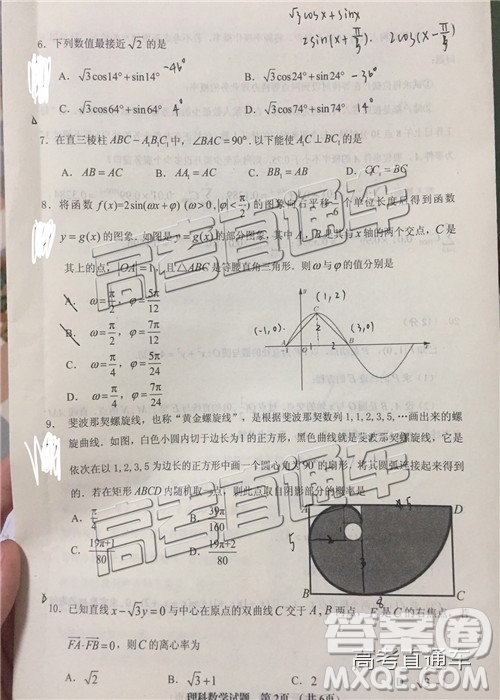 √3cosx+sinx
2sin(x+π/3). 2cos(x-π/6)
6. 下列数值最接近√2的是
A. √3cos14°+sin14° -46°
B. √3cos24°+sin24° -36°
C. √3cos64°+sin64° 4°
D. √3cos74°+sin74° 14°
7. 在直三棱柱ABC-A₁B₁C₁中，∠BAC=90°.以下能使A₁C⊥BC₁的是
A. AB=AC
B. AA₁=AC
C. BB₁=AB
D. CC₁=BC
8. 将函数 f(x)=2sin(ωx+φ) (ω>0,|φ|<π/2)的图象向右平移一个单位长度后得到函数
y=g(x)的图象.如图是y=g(x)的部分图象，其中A，B是其与x轴的两个交点，C是
其上的点，|OA|=1，且△ABC是等腰直角三角形.则ω与φ的值分别是
A. ω=π/2，φ=5π/12
B. ω=π/2，φ=7π/12
C. ω=π/4，φ=5π/24
D. ω=π/4，φ=7π/24
(1,2)
C
(-1,0)
2
(3,0)
A -1 1 2 B
9. 斐波那契螺旋线，也称“黄金螺旋线”，是根据斐波那契数列1,1,2,3,5,…画出来的螺
旋曲线.如图，白色小圆内切于边长为1的正方形，黑色曲线就是斐波那契螺旋线，它是
依次在以1,2,3,5为边长的正方形中画一个圆心角为90°的扇形，将其圆弧连接起来得到
的.若在矩形ABCD内随机取一点，则此点取自阴影部分的概率是
A. π/4
B. 39π/160
C. (19π+1)/80
D. (19π+2)/80
A D
5
3
B 8 C
10. 已知直线x-√3y=0与中心在原点的双曲线C交于A,B两点，F是C的右焦点，若
FA·FB=0，则C的离心率为
A. √2
B. √3+1
C. √2
D. 2
理科数学试题 第2页（共6页）
高考直通车
高考直通车
答案圈
高考直通车